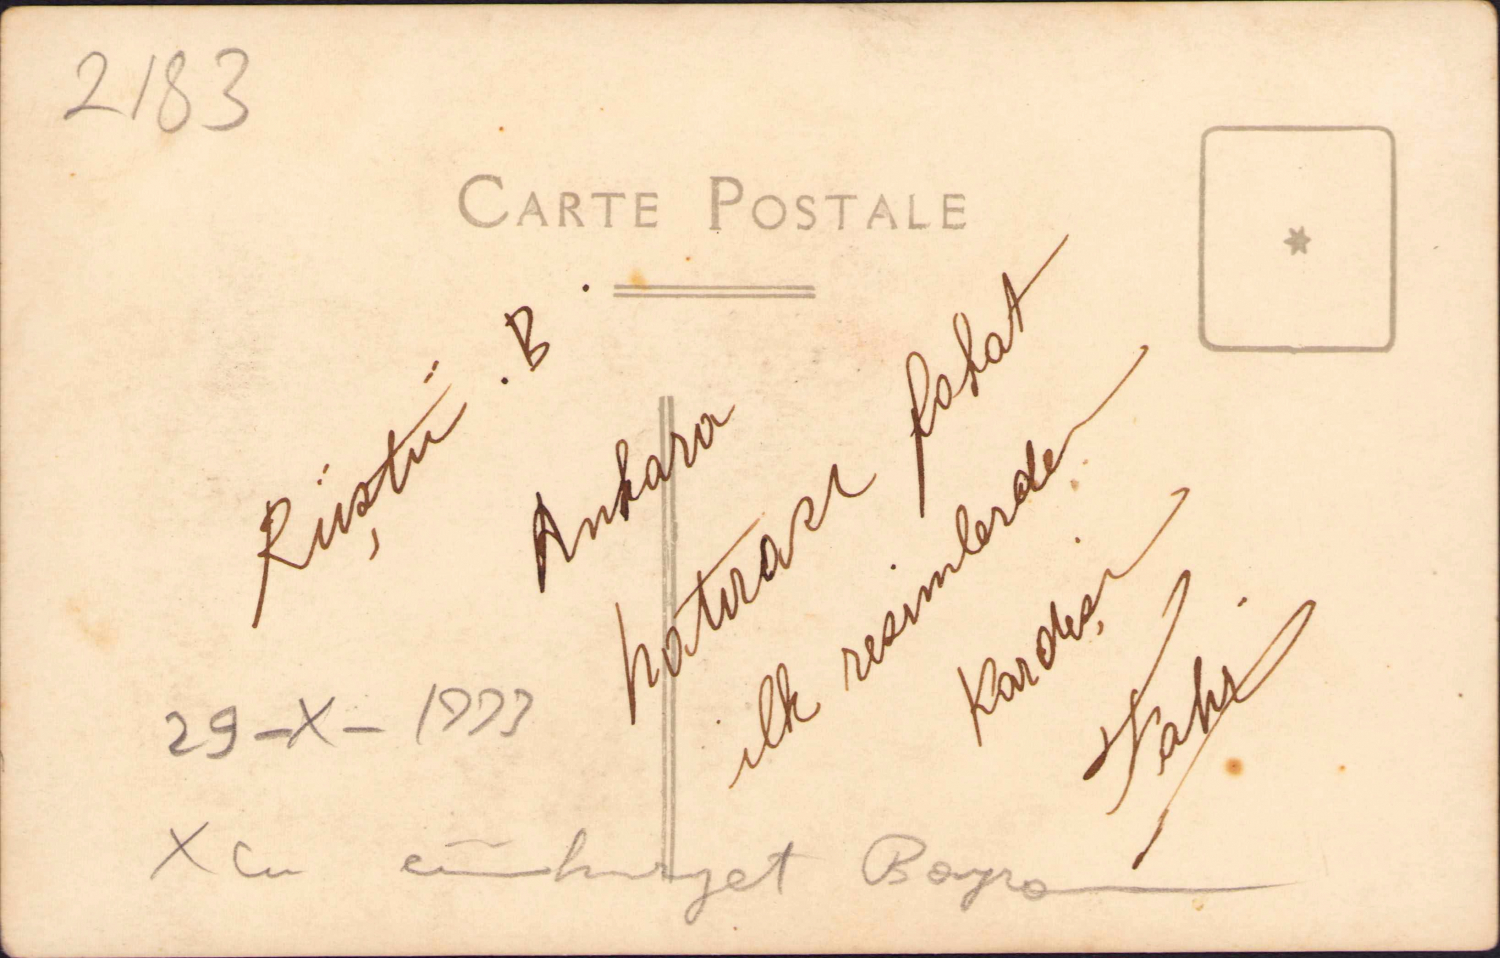 2183
CARTE POSTALE
Rüştü . B .
Ankara
hatırası fakat
ilk resimlerden
Kardeşin
29-X-1933
X cu cümhuriyet Bayra